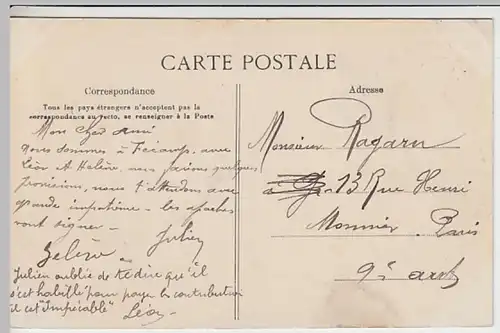 CARTE POSTALE
Correspondance
Tous les pays étrangers n'acceptent pas la
correspondance au recto, se renseigner à la Poste
Mon cher ami
nous sommes à Fécamp, avec
Léon et Hélène, nous faisons quelques
provisions, nous t'attendons avec
grande impatience - les apaches
vont signer -
Julien
Julien oublie de te dire qu'il
s'est habillé pour payer la contribution
il est "Impécable" Léon
Adresse
Monsieur Ragaru
à 13 Rue Henri
Monnier. Paris
9è arrdt